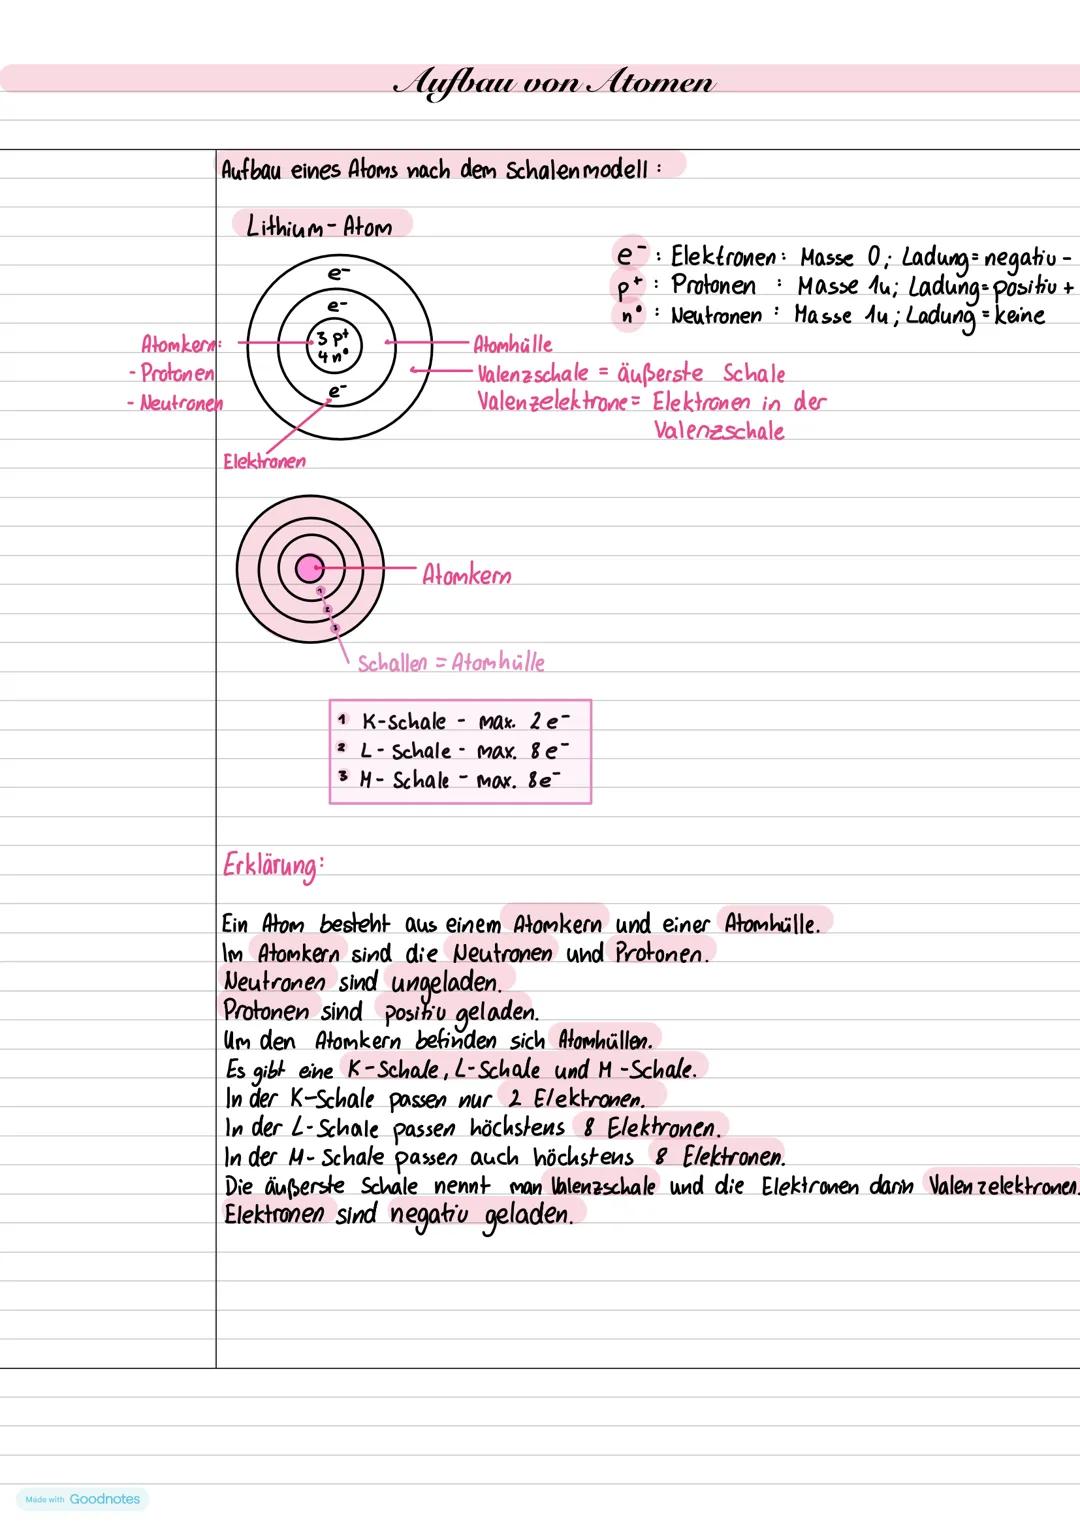 Aufbau von Atomen
Aufbau eines Atoms nach dem Schalenmodell :
Lithium-Atom
e⁻ : Elektronen : Masse 0 ; Ladung = negativ -
p⁺ : Protonen : Masse 1u ; Ladung = positiv +
n° : Neutronen : Masse 1u ; Ladung = keine
e⁻
e⁻
3 p⁺
4 n°
e⁻
Atomkern:
- Protonen
- Neutronen
Atomhülle
Valenzschale = äußerste Schale
Valenzelektrone = Elektronen in der
Valenzschale
Elektronen
Atomkern
1
2
3
Schallen = Atomhülle
1 K-Schale - max. 2 e⁻
2 L - Schale - max. 8 e⁻
3 M - Schale - max. 8 e⁻
Erklärung:
Ein Atom besteht aus einem Atomkern und einer Atomhülle.
Im Atomkern sind die Neutronen und Protonen.
Neutronen sind ungeladen.
Protonen sind positiv geladen.
Um den Atomkern befinden sich Atomhüllen.
Es gibt eine K-Schale, L-Schale und M-Schale.
In der K-Schale passen nur 2 Elektronen.
In der L-Schale passen höchstens 8 Elektronen.
In der M-Schale passen auch höchstens 8 Elektronen.
Die äußerste Schale nennt man Valenzschale und die Elektronen darin Valenzelektronen.
Elektronen sind negativ geladen.
Made with Goodnotes